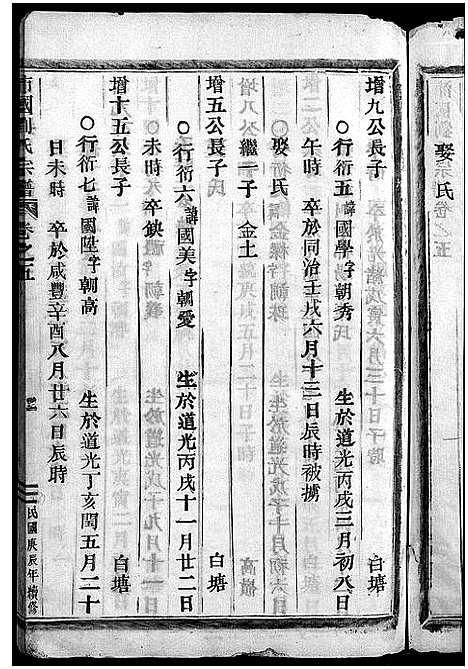 娶宗氏
增九公長子 白塘
○行衍五諱國學字朝秀 生於道光丙戌三月初八日
午時 卒於同治壬戌六月十三日辰時被擄
○娶氏
增八公繼一子 金土
增五公長子 白塘
○行衍六諱國美字朝愛 生於道光丙戌十一月廿二日
未時 卒缺
增十五公長子 白塘
○行衍七諱國陞字朝高 生於道光丁亥閏五月二十
日未時 卒於咸豐辛酉八月廿六日辰時
氏宗譜 卷之五
民國庚辰年續修